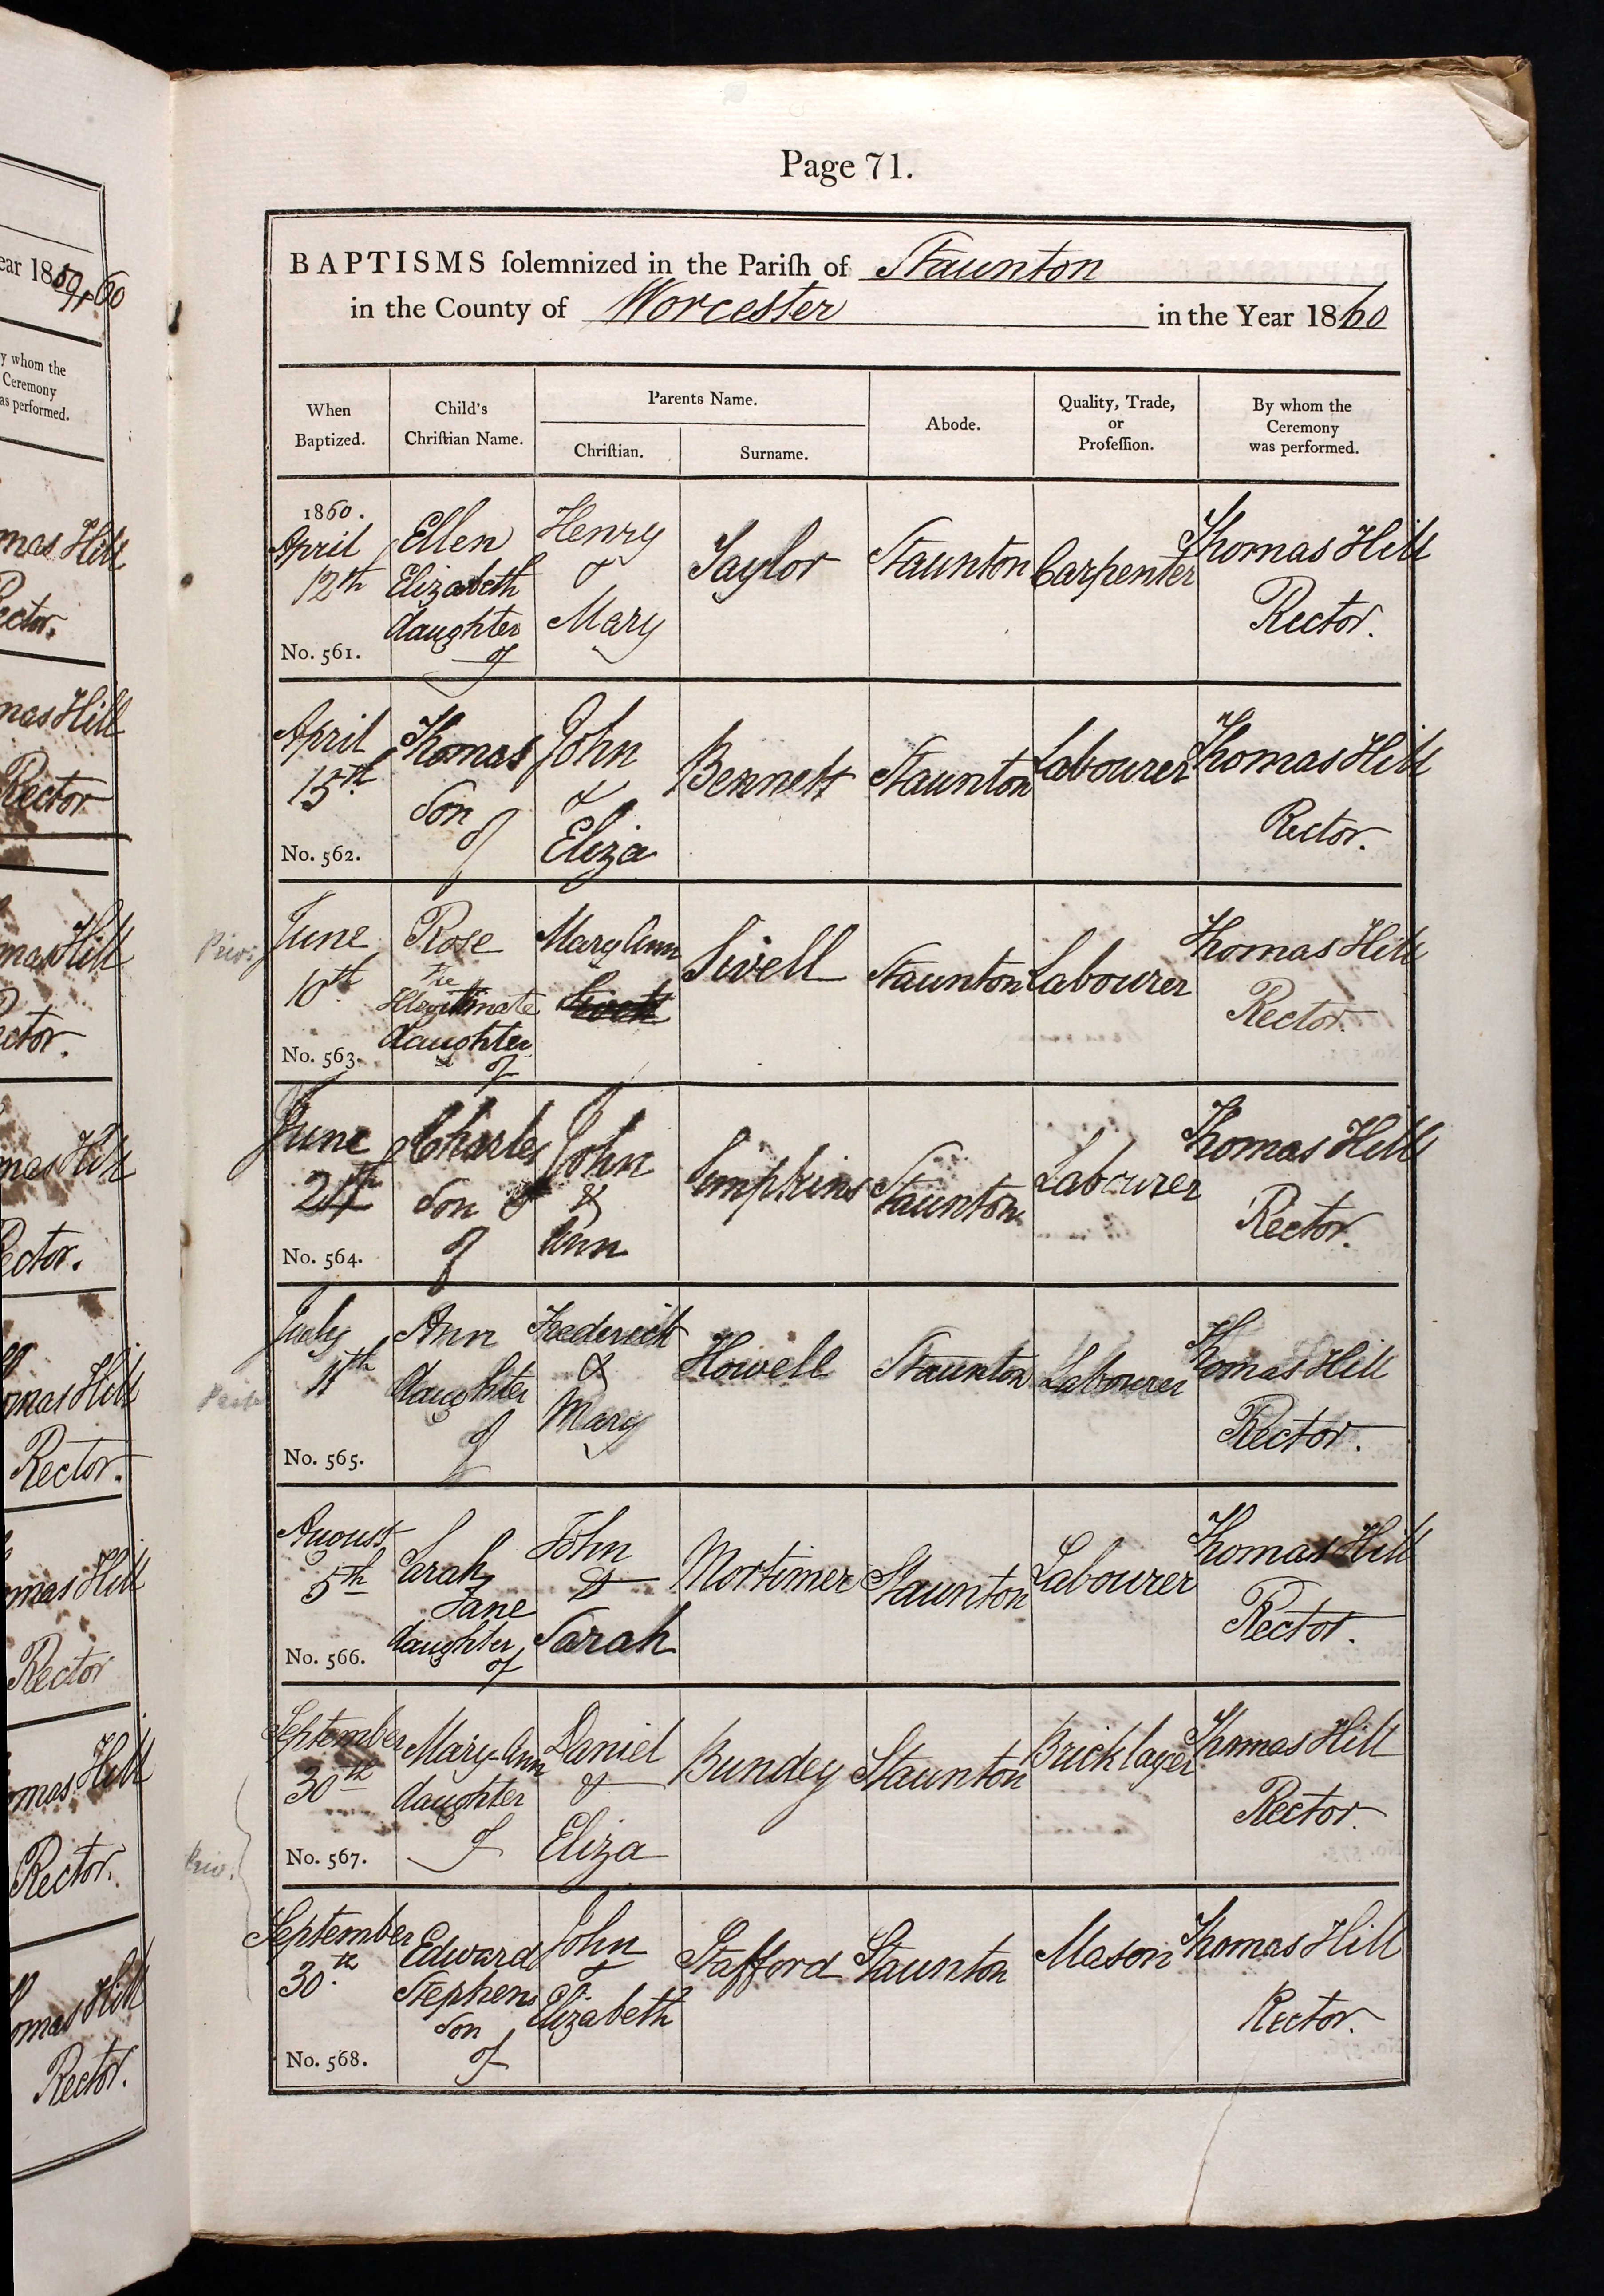 Page 71.
BAPTISMS ſolemnized in the Pariſh of Staunton
in the County of Worcester in the Year 1860
When Baptized.
Child's Chriſtian Name.
Parents Name.
Chriſtian.
Surname.
Abode.
Quality, Trade, or Profeſſion.
By whom the Ceremony was performed.
1860.
April
12th
No. 561.
Ellen
Elizabeth
daughter
of
Henry
&
Mary
Taylor
Staunton
Carpenter
Thomas Hill
Rector.
April
15th
No. 562.
Thomas
Son
of
John
&
Eliza
Bennett
Staunton
Labourer
Thomas Hill
Rector.
Priv.
June
10th
No. 563.
Rose
The
Illegitimate
daughter
of
Mary Ann
Sivell
Staunton
Labourer
Thomas Hill
Rector.
June
24th
No. 564.
Charles
Son
of
John
&
Ann
Simpkins
Staunton
Labourer
Thomas Hill
Rector.
July
11th
No. 565.
Ann
daughter
of
Frederick
&
Mary
Howell
Staunton
Labourer
Thomas Hill
Rector.
August
5th
No. 566.
Sarah
Jane
daughter
of
John
&
Sarah
Mortimer
Staunton
Labourer
Thomas Hill
Rector.
September
30th
No. 567.
Mary-Ann
daughter
of
Daniel
&
Eliza
Bundey
Staunton
Bricklayer
Thomas Hill
Rector.
Priv.
September
30th
No. 568.
Edward
Stephen
Son
of
John
&
Elizabeth
Stafford
Staunton
Mason
Thomas Hill
Rector.